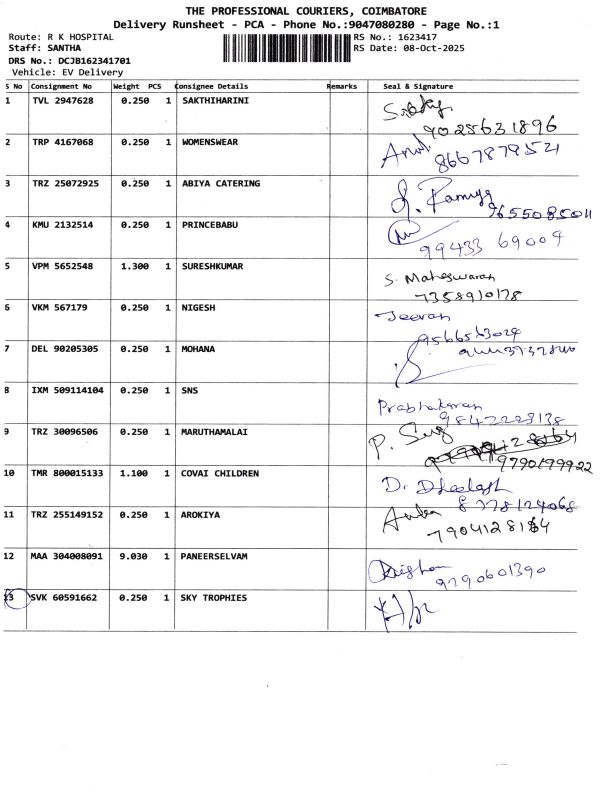 THE PROFESSIONAL COURIERS, COIMBATORE
Delivery Runsheet - PCA - Phone No.:9047080280 - Page No.:1
Route: R K HOSPITAL RS No.: 1623417
Staff: SANTHA RS Date: 08-Oct-2025
DRS No.: DCJB162341701
Vehicle: EV Delivery
S No Consignment No Weight PCS Consignee Details Remarks Seal & Signature
1 TVL 2947628 0.250 1 SAKTHIHARINI
9025631896
2 TRP 4167068 0.250 1 WOMENSWEAR
8667879521
3 TRZ 25072925 0.250 1 ABIYA CATERING
9655085011
4 KMU 2132514 0.250 1 PRINCEBABU
99433 69009
5 VPM 5652548 1.300 1 SURESHKUMAR
S. Maheswaran
7358910178
6 VKM 567179 0.250 1 NIGESH
Jeevan
9566563029
7 DEL 90205305 0.250 1 MOHANA
8 IXM 509114104 0.250 1 SNS
Prabhakaran
9847229138
9 TRZ 30096506 0.250 1 MARUTHAMALAI
9790199922
10 TMR 800015133 1.100 1 COVAI CHILDREN
Dr
8778124068
11 TRZ 255149152 0.250 1 AROKIYA
12 MAA 304008091 9.030 1 PANEERSELVAM
9290601390
13 SVK 60591662 0.250 1 SKY TROPHIES